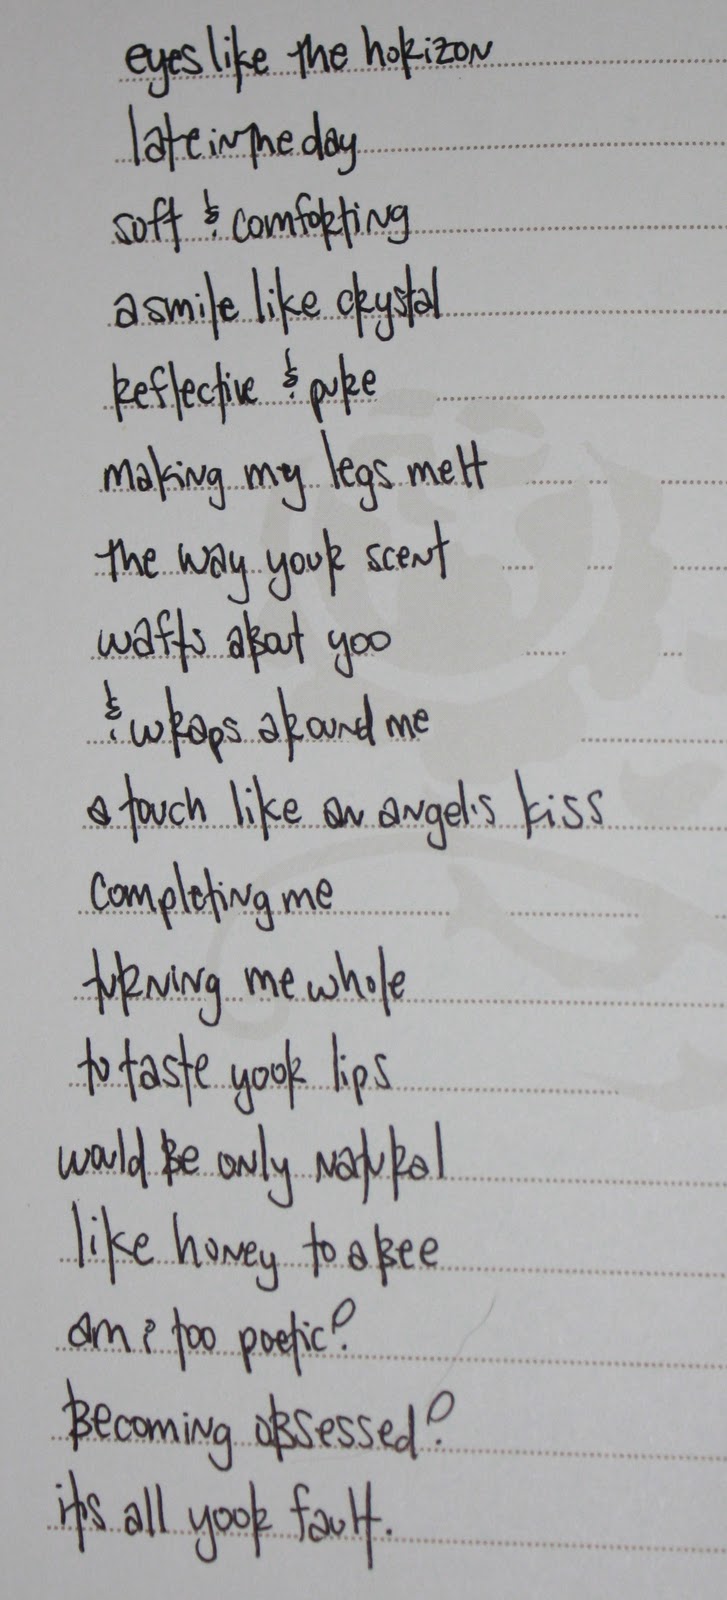 eyes like the horizon
late in the day
soft & comforting
a smile like crystal
reflective & pure
making my legs melt
the way your scent
wafts about you
& wraps around me
a touch like an angel's kiss
completing me
turning me whole
to taste your lips
would be only natural
like honey to a bee
am i too poetic?
Becoming obsessed?
its all your fault.